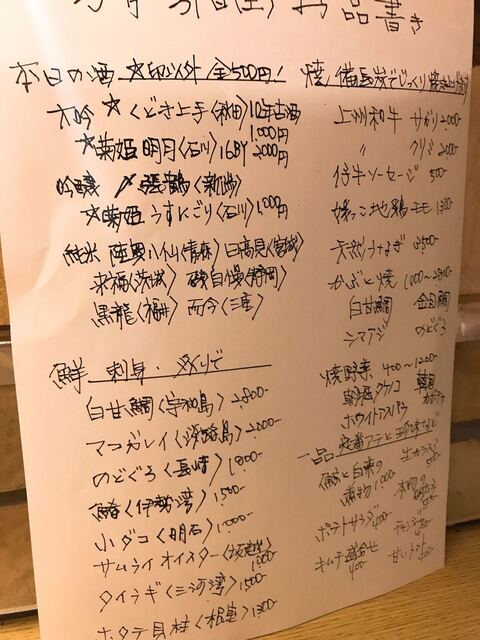 本日の酒 ☆印以外 全500円!
大吟 ☆くどき上手〈秋田〉10年古酒
1,000円
☆菊姫 明月〈石川〉16BY 2,000円
吟醸 〆張鶴〈新潟〉
☆菊姫 うすにごり〈石川〉1,000円
純米 陸奥八仙〈青森〉日高見〈宮城〉
来福〈茨城〉 磯自慢〈静岡〉
黒龍〈福井〉 而今〈三重〉
鮮 刺身・炙りで
白甘鯛〈宇和島〉2,800-
マコガレイ〈淡路島〉2,000-
のどぐろ〈長崎〉1,800-
〈伊勢湾〉1,500-
小ダコ〈明石〉1,000-
サムライオイスター
1,000-
タイラギ〈三河湾〉1,500-
ホタテ貝柱〈根室〉1,300-
焼 備長炭でじっくり
上州和牛 サガリ 2,000-
〃 クリミ 2,000-
仔牛ソーセージ 500-
地鶏モモ 1,300-
天然うなぎ 3,500-
かぶと焼 1,000~
白甘鯛 金目鯛
シマアジ のどぐろ
焼野菜 400~1200-
タケノコ
ホワイトアスパラ
一品 定番アテと珍味など
白菜の
煮物 1,000-
ポテトサラダ 400-
キムチ盛合せ
400-
甘いトマト
400-